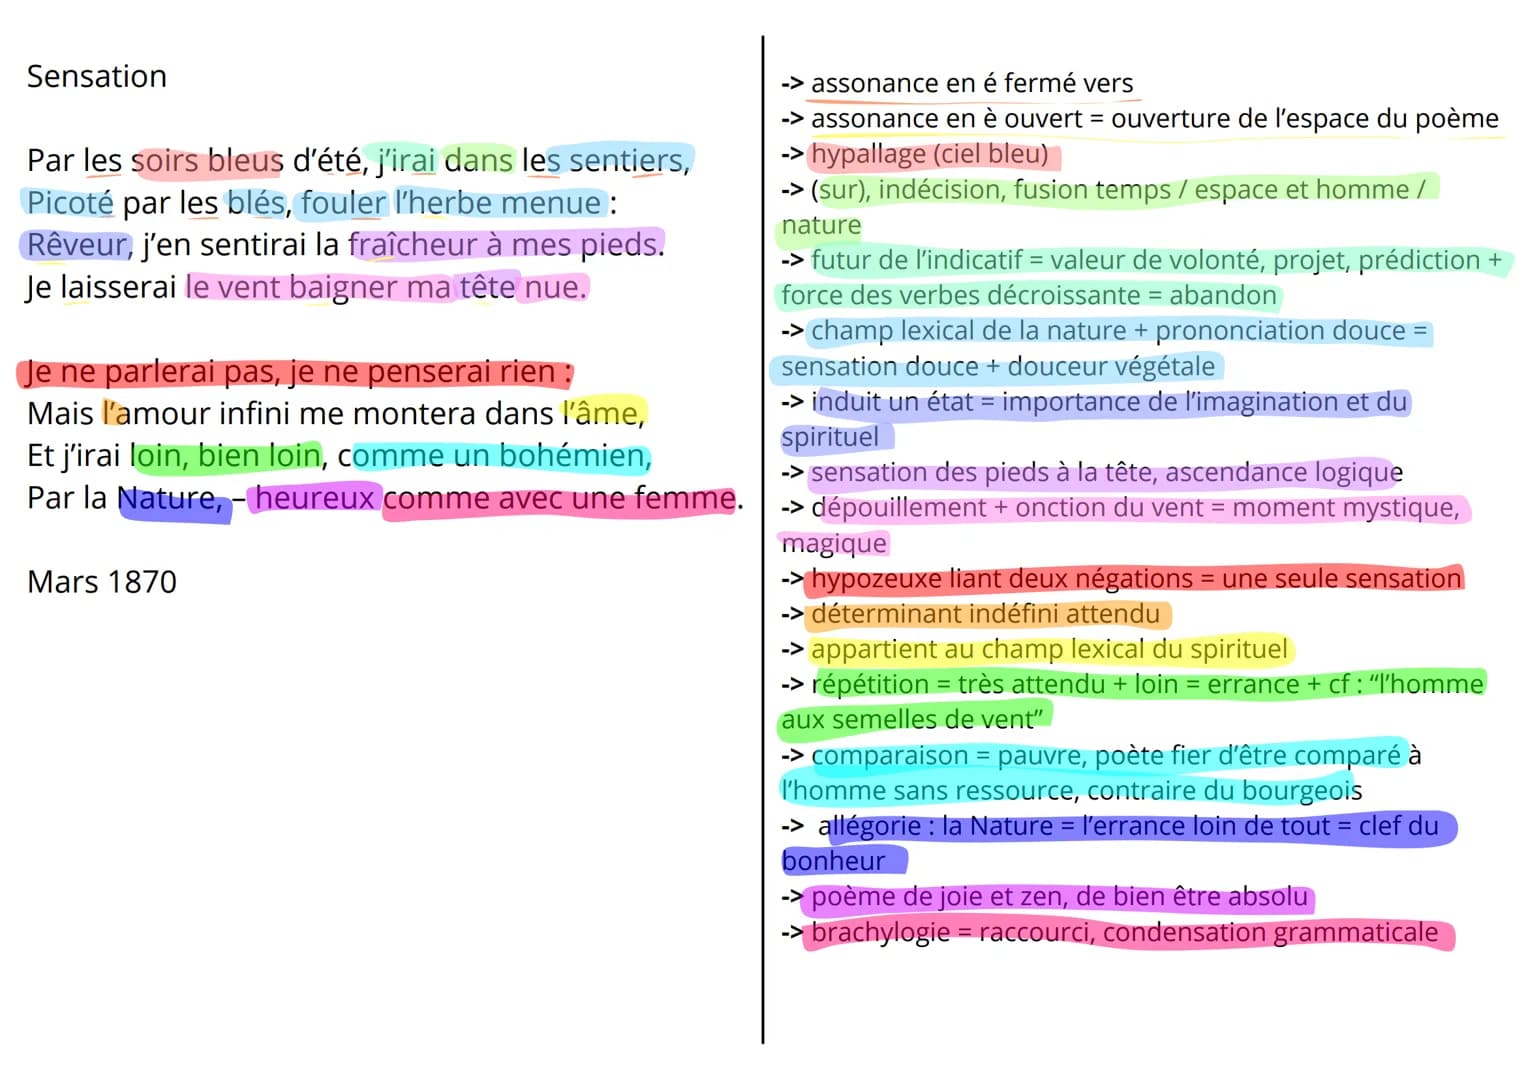 Sensation
Par les soirs bleus d'été, j'irai dans les sentiers,
Picoté par les blés, fouler l'herbe menue :
Rêveur, j'en sentirai la fraîcheur à mes pieds.
Je laisserai le vent baigner ma tête nue.
Je ne parlerai pas, je ne penserai rien :
Mais l'amour infini me montera dans l'âme,
Et j'irai loin, bien loin, comme un bohémien,
Par la Nature, – heureux comme avec une femme.
Mars 1870
-> assonance en é fermé vers
-> assonance en è ouvert = ouverture de l'espace du poème
-> hypallage (ciel bleu)
-> (sur), indécision, fusion temps / espace et homme /
nature
-> futur de l'indicatif = valeur de volonté, projet, prédiction +
force des verbes décroissante = abandon
-> champ lexical de la nature + prononciation douce =
sensation douce + douceur végétale
-> induit un état = importance de l'imagination et du
spirituel
-> sensation des pieds à la tête, ascendance logique
-> dépouillement + onction du vent = moment mystique,
magique
-> hypozeuxe liant deux négations = une seule sensation
-> déterminant indéfini attendu
-> appartient au champ lexical du spirituel
-> répétition = très attendu + loin = errance + cf : “l'homme
aux semelles de vent”
-> comparaison = pauvre, poète fier d'être comparé à
l'homme sans ressource, contraire du bourgeois
-> allégorie : la Nature = l'errance loin de tout = clef du
bonheur
-> poème de joie et zen, de bien être absolu
-> brachylogie = raccourci, condensation grammaticale